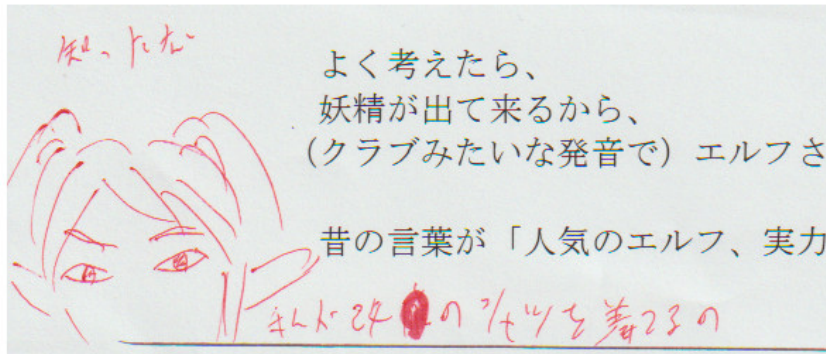 知ったな
よく考えたら、
妖精が出て来るから、
（クラブみたいな発音で）エルフさ
昔の言葉が「人気のエルフ、実力
24 のシャツを着てるの